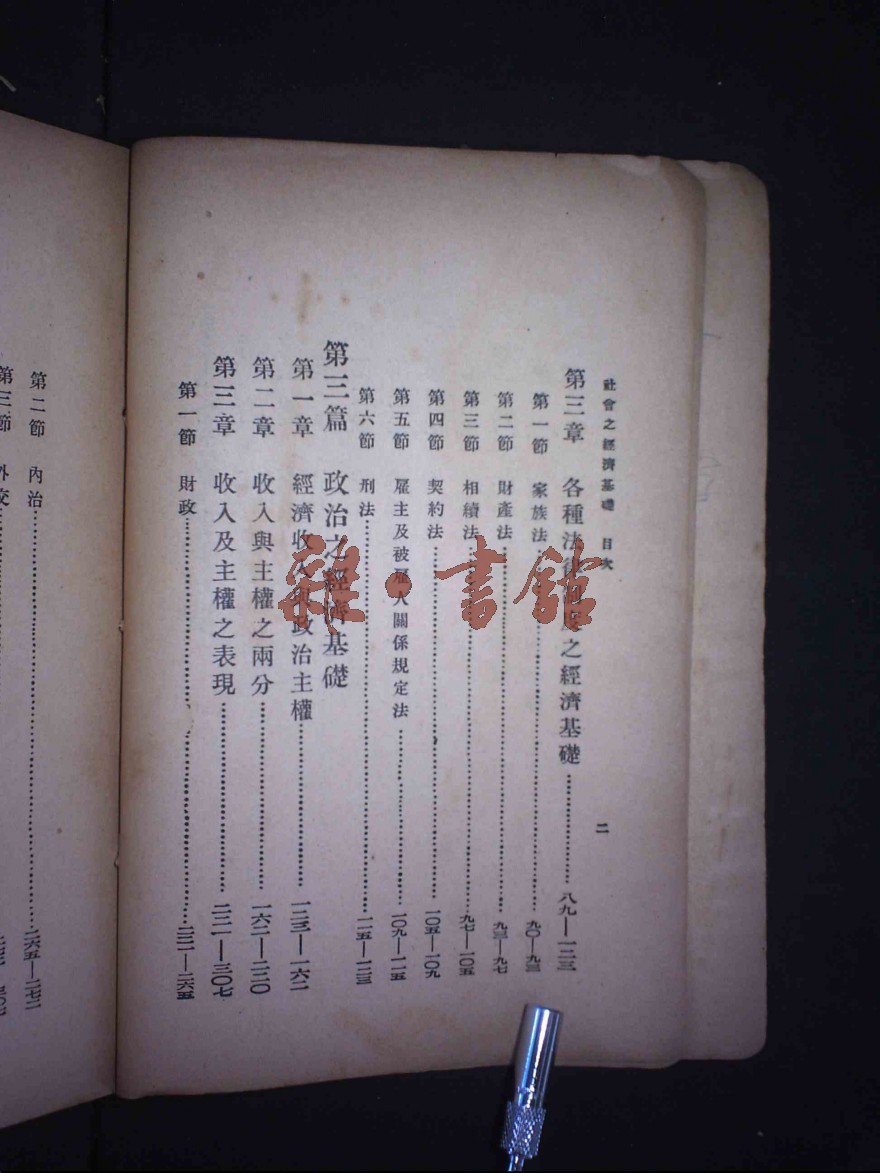 社會之經濟基礎 目次
二
第三章 各種法律制度之經濟基礎……………八九—一二三
第一節 家族法……………九〇—九三
第二節 財產法……………九三—九七
第三節 相續法……………九七—一〇五
第四節 契約法……………一〇五—一〇九
第五節 雇主及被雇人關係規定法……………一〇九—一一五
第六節 刑法……………一一五—一二三
第三篇 政治之經濟基礎
第一章 經濟收入與政治主權……………一二三—一六二
第二章 收入與主權之兩分……………一六二—二二〇
第三章 收入及主權之表現……………二二一—三〇七
第一節 財政……………二二一—二六五
第二節 內治……………二六五—二七二
第三節 外交……………
雜·書館